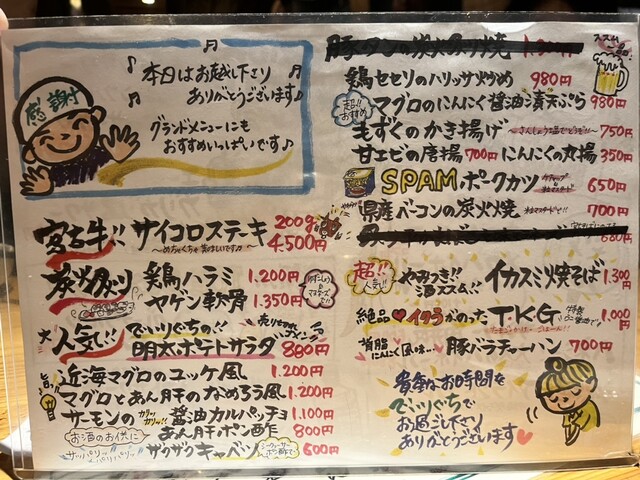 本日はお越し下さり
ありがとうございます♪
グランドメニューにも
おすすめいっぱいです♪
感謝
宮古牛!! サイコロステーキ 200g 4,500円
～めちゃくちゃ美味しいです♪～
炭火炙り 鶏ハラミ 1,200円
ヤゲン軟骨 1,350円
大人気!! でいりぐちの!!
明太ポテトサラダ 880円
近海マグロのユッケ風 1,200円
マグロとあん肝のなめろう風 1,200円
サーモンの カリッカリッ!! 醤油カルパッチョ 1,100円
お酒のお供に あん肝ポン酢 800円
サッパリッ パリパリッ ザクザクキャベツ 500円
ススム
鶏セセリのハリッサ炒め 980円
超!!おすすめ マグロのにんにく醤油漬天ぷら 980円
もずくのかき揚げ 750円
甘エビの唐揚 700円 にんにくの丸揚 350円
SPAM ポークカツ 650円
県産ベーコンの炭火焼 700円
680円
超!!人気!! やみつき!! イカスミ焼そば 1,300円
絶品♥イクラがのった T.K.G 1,000円
背脂にんにく風味… 豚バラチャーハン 700円
貴重なお時間を
でいりぐちで
お過ごし下さり
ありがとうございます♥